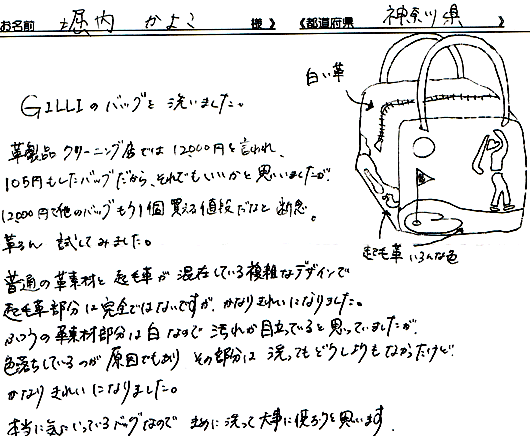 お名前 堀内 かよこ 様 》 《都道府県 神奈川県 》
白い革
GILLIのバッグを洗いました。
革製品クリーニング店では12,000円と言われ、
105円もしたバッグだから、それでもいいかと思いましたが
12000円で他のバッグもう1個買える値段だなと断念。
革るん 試してみました。
起毛革 いろんな色
普通の革素材と起毛革が混在している複雑なデザインで
起毛革部分は完全ではないですが、かなりきれいになりました。
ふつうの革素材部分は白なので汚れが目立っていると思っていましたが、
色落ちしているのが原因でもあり その部分は洗ってもどうしようもなかったけど
かなりきれいになりました。
本当に気にいっているバッグなので まめに洗って大事に使おうと思います.